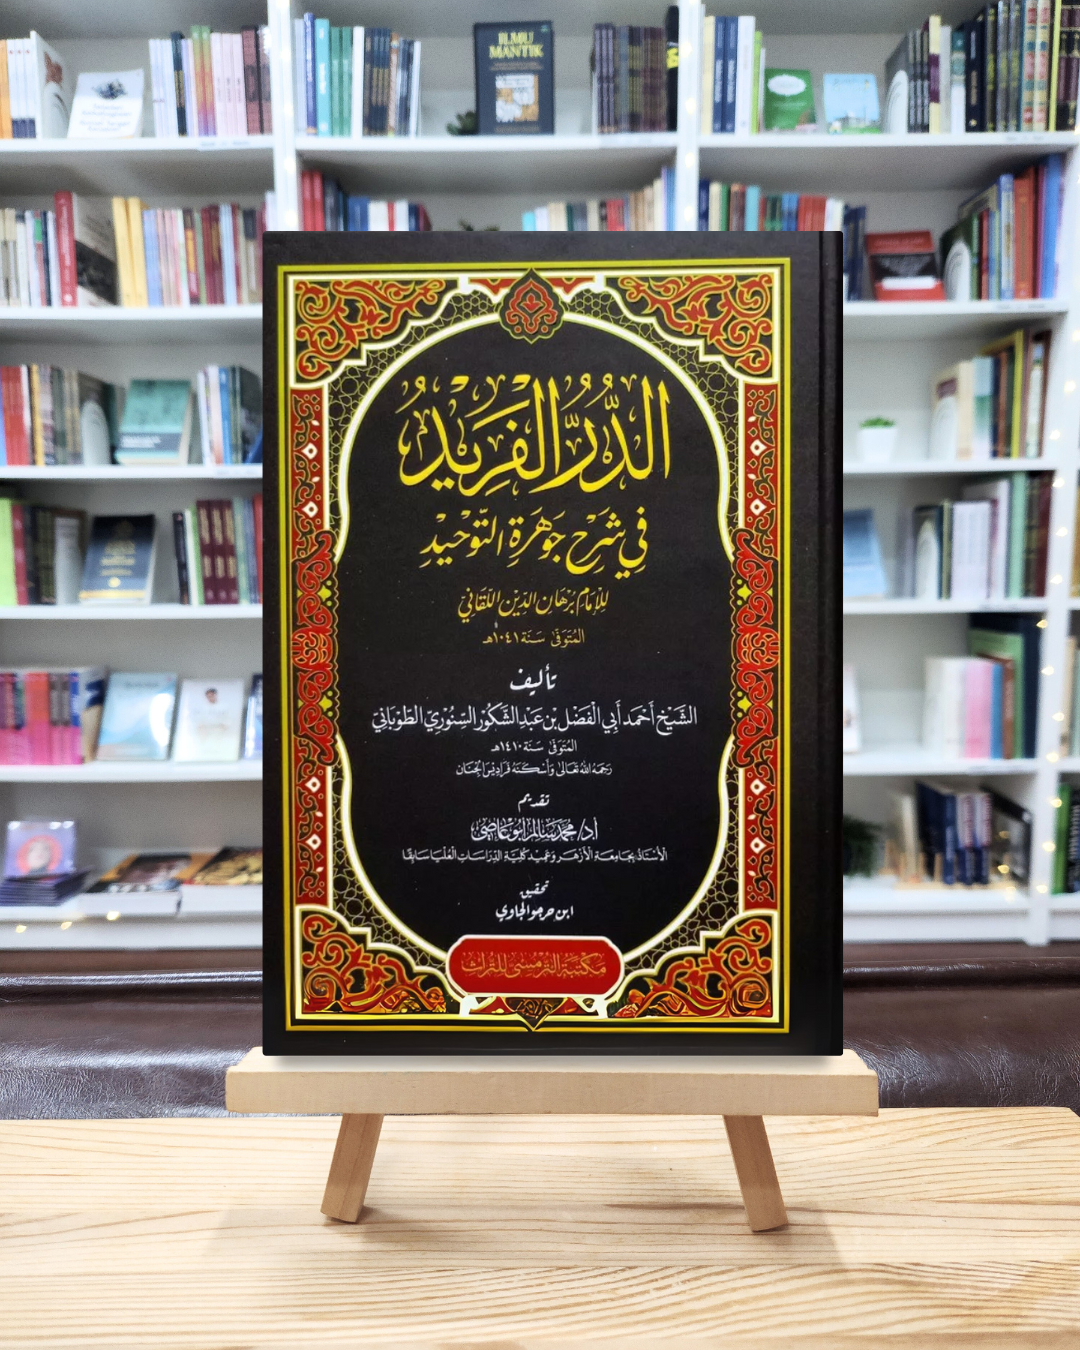 ILMU
MANTIK
الدُّرُّ الْفَرِيْدُ
فِي شَرْحِ جَوْهَرَةِ التَّوْحِيْدِ
لِلْإِمَامِ بُرْهَان الدِّيْن اللَّقَانِيّ
المُتَوَفَّى سَنَة ١٠٤١هـ
تأليف
الشَّيْخ أَحْمَد أَبِي الْفَضْل بْن عَبْد الشَّكُوْر السِّنُوْرِيّ الطُّوْبَانِيّ
المُتَوَفَّى سَنَة ١٤١٠هـ
رَحِمَهُ اللهُ تَعَالَى وَأَسْكَنَهُ فَرَادِيْسَ الْجِنَان
تقديم
أ.د/ محمد سالم أبو عاصي
الأُسْتَاذُ بِجَامِعَةِ الأَزْهَر وَعَمِيْد كُلِّيَّة الدِّرَاسَاتِ الْعُلْيَا سَابِقًا
تحقيق
ابن حرجو الجاوي
مكتبة الترمسي للتراث